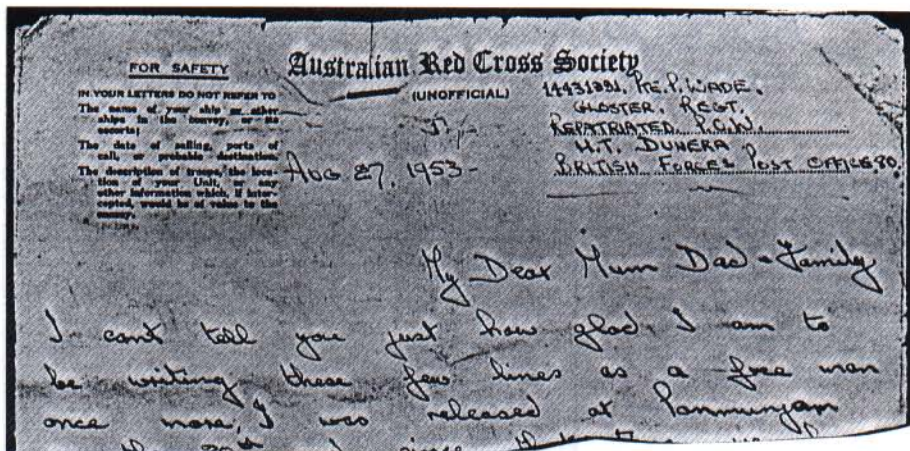 Australian Red Cross Society
(UNOFFICIAL)
FOR SAFETY
IN YOUR LETTERS DO NOT REFER TO
The name of your ship or other
ships in the convoy, or its
escorts;
The date of sailing, ports of
call, or probable destination.
The description of troops, the loca-
tion of your Unit, or any
other information which, if inter-
cepted, would be of value to the
enemy.
PTE. P. WADE.
GLOSTER. REGT.
REPATRIATED P.O.W.
H.T. DUNERA
BRITISH FORCES POST OFFICE 90.
AUG 27, 1953-
My Dear Mum Dad & Family
I cant tell you just how glad I am to
be writing these few lines as a free man
once more, I was released at Panmunjam